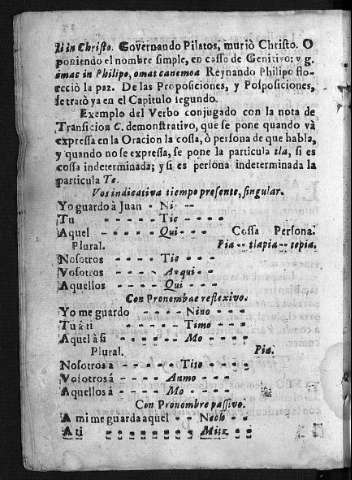 li in Christo. Governando Pilatos, muriò Christo. O
poniendo el nombre simple, en casso de Genitivo: v g.
omac in Philipo, omat canemoa Reynando Philipo flo-
reciò la paz. De las Proposiciones, y Posposiciones,
se tratò ya en el Capitulo segundo.
Exemplo del Verbo conjugado con la nota de
Transicion C. demonstrativo, que se pone quando và
expressa en la Oracion la cossa, ò persona de que habla,
y quando no se expressa, se pone la particula tla, si es
cossa indeterminada; y si es persona indeterminada la
particula Te.
Vos indicativa tiempo presente, singular.
Yo guardo à Juan - Ni - - -
Tu - - - - Tic - - - -
Aquel - - - - Qui - - - Cossa Persona.
Plural. Pia -- tlapia -- tepia.
Nosotros - - - - Tic - - - -
Vosotros - - - - Anqui - - - -
Aquellos - - - - Qui - - - -
Con Pronombre reflexivo.
Yo me guardo - - - - Nino - - -
Tu à ti - - - - Timo - - - -
Aquel à si - - - - Mo - - - -
Plural. Pia.
Nosotros a - - - - Tito - - - -
Vosotros à - - - - Anmo - - - -
Aquellos à - - - - Mo - - - -
Con Pronombre passivo.
A mi me guarda aquel - - Nech - -
A ti - - - - - - - Mitz - -